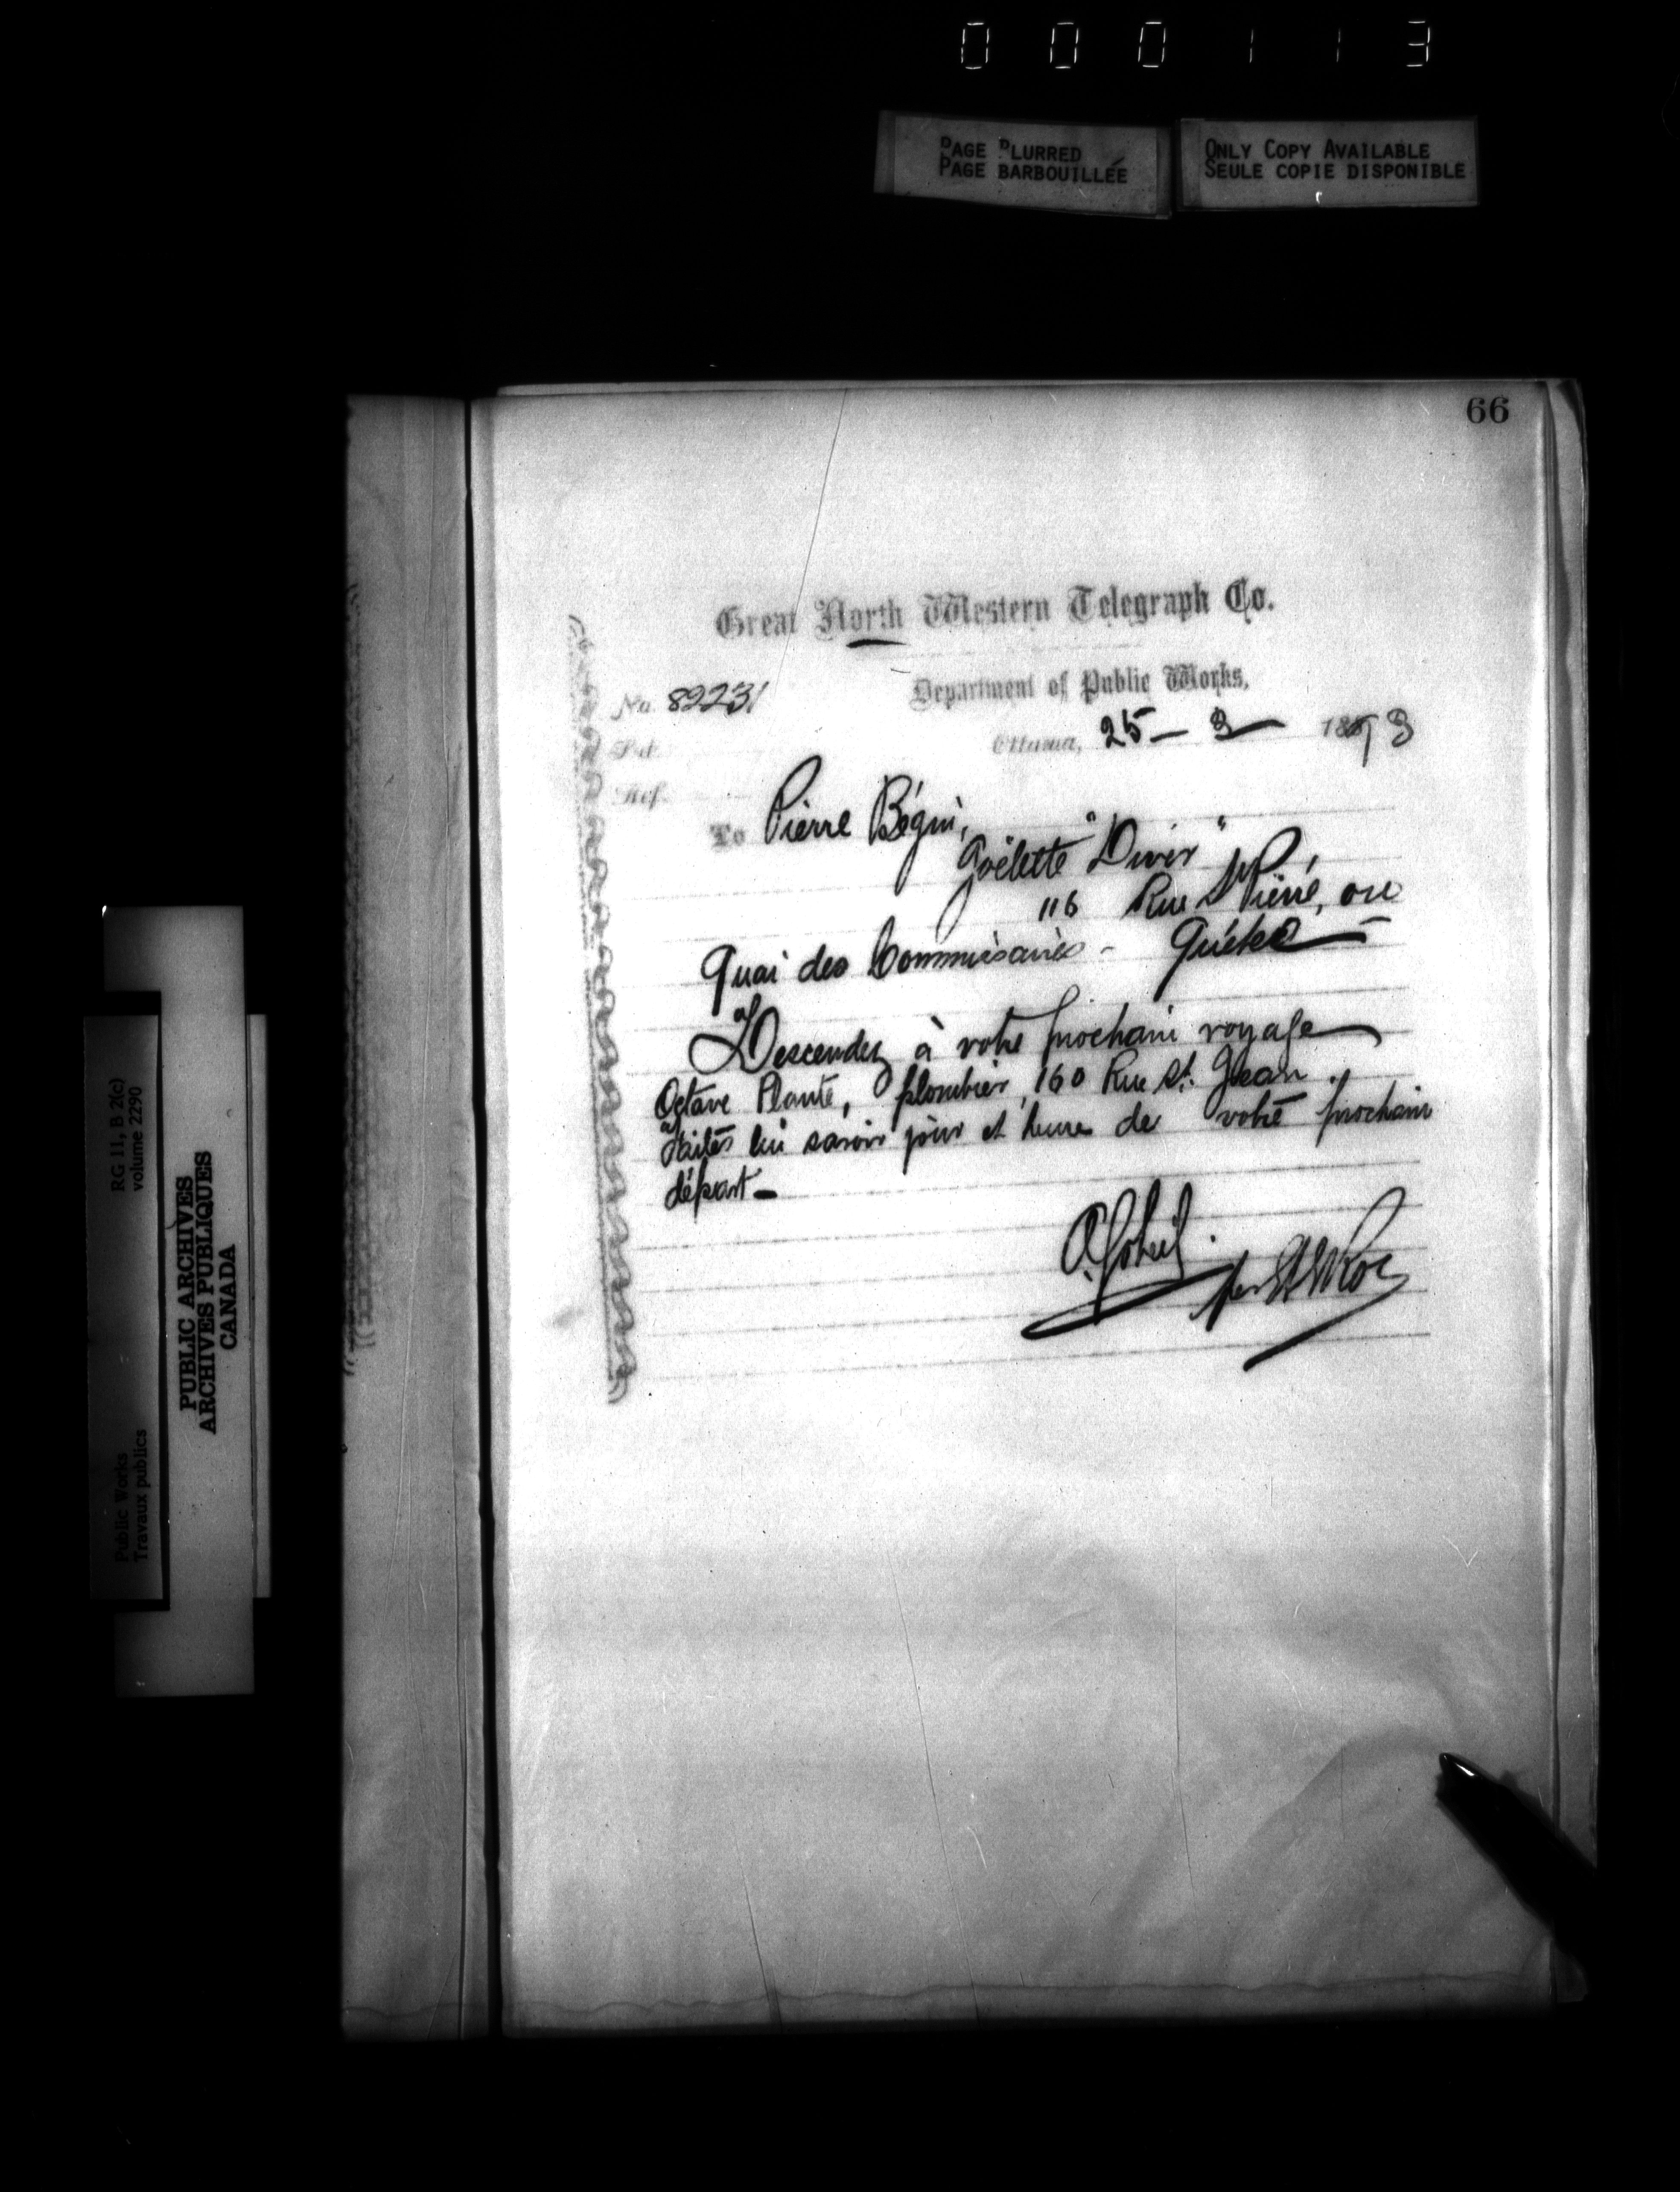 000113
PAGE BLURRED
PAGE BARBOUILLÉE
ONLY COPY AVAILABLE
SEULE COPIE DISPONIBLE
66
Great North Western Telegraph Co.
Department of Public Works,
No. 89231
Ottawa, 25 — 3 — 1893
Ref.
To Pierre Bégin,
Goëlette "
116 Rue St Pierre, ou
Quai des Commissaires - Québec
Descendez à votre prochain voyage
Octave Plante, plombier, 160 Rue St. Jean.
Faites lui savoir jour et heure de votre prochain
départ —
O. Gobeil.
per
RG 11, B 2(c)
volume 2290
Public Works
Travaux publics
PUBLIC ARCHIVES
ARCHIVES PUBLIQUES
CANADA